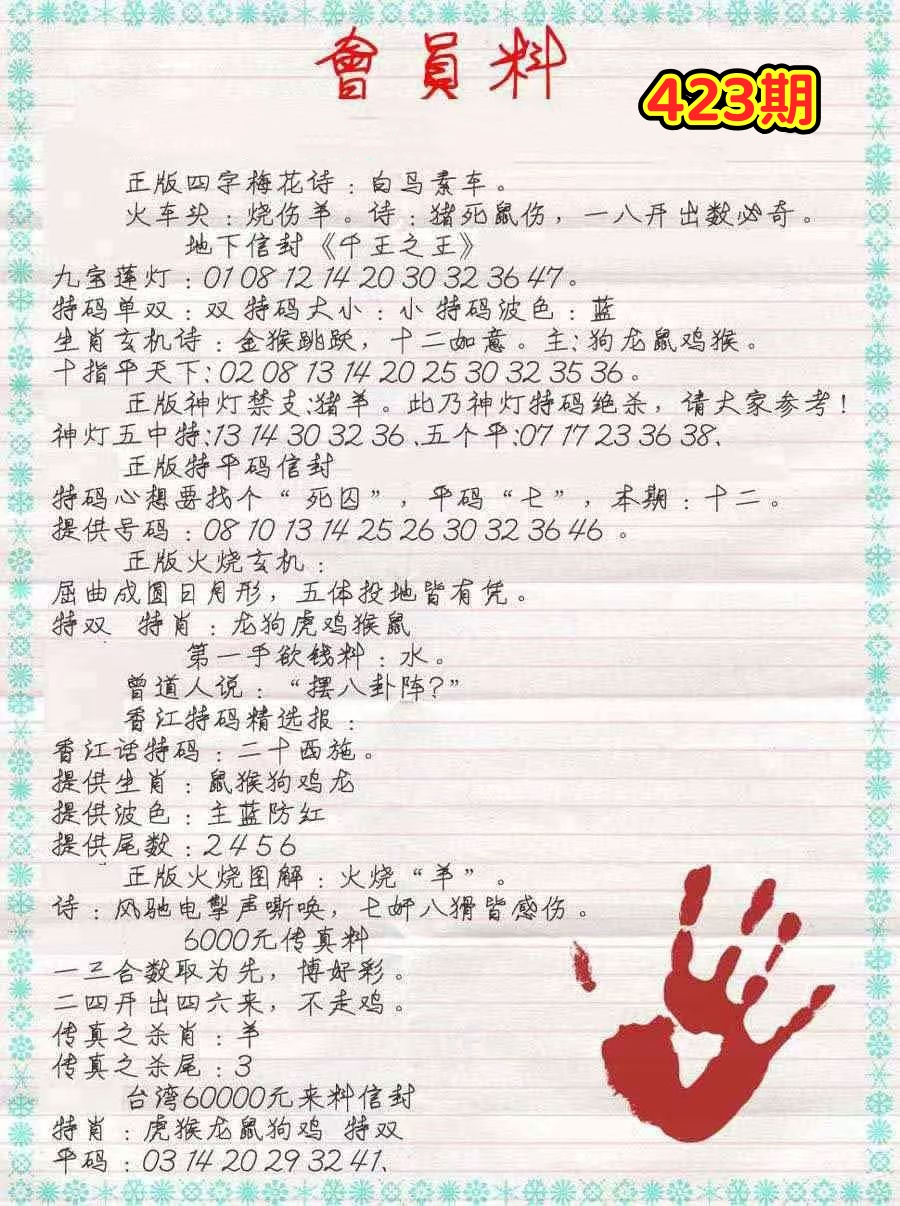 會員料
423期
正版四字梅花诗：白鸟素车。
火车头：烧伤羊。诗：猪死鼠伤，一八开出数必奇。
地下信封《千王之王》
九宝莲灯：01 08 12 14 20 30 32 36 47。
特码单双：双 特码大小：小 特码波色：蓝
生肖玄机诗：金猴跳跃，十二如意。主：狗龙鼠鸡猴。
十指平天下：02 08 13 14 20 25 30 32 35 36。
正版神灯禁支：猪羊。此乃神灯特码绝杀，请大家参考！
神灯五中特：13 14 30 32 36、五个平：07 17 23 36 38、
正版特平码信封
特码心想要找个“死囚”，平码“七”，本期：十二。
提供号码：08 10 13 14 25 26 30 32 36 46 。
正版火烧玄机：
屈曲成圆日月形，五体投地皆有凭。
特双 特肖：龙狗虎鸡猴鼠
第一手欲钱料：水。
曾道人说：“摆八卦阵？”
香江特码精选报：
香江话特码：二十西施。
提供生肖：鼠猴狗鸡龙
提供波色：主蓝防红
提供尾数：2 4 5 6
正版火烧图解：火烧“羊”。
诗：风驰电掣声嘶唤，七奸八猾皆感伤。
6000元传真料
一三合数取为先，博好彩。
二四开出四六来，不走鸡。
传真之杀肖：羊
传真之杀尾：3
台湾60000元来料信封
特肖：虎猴龙鼠狗鸡 特双
平码：03 14 20 29 32 41、